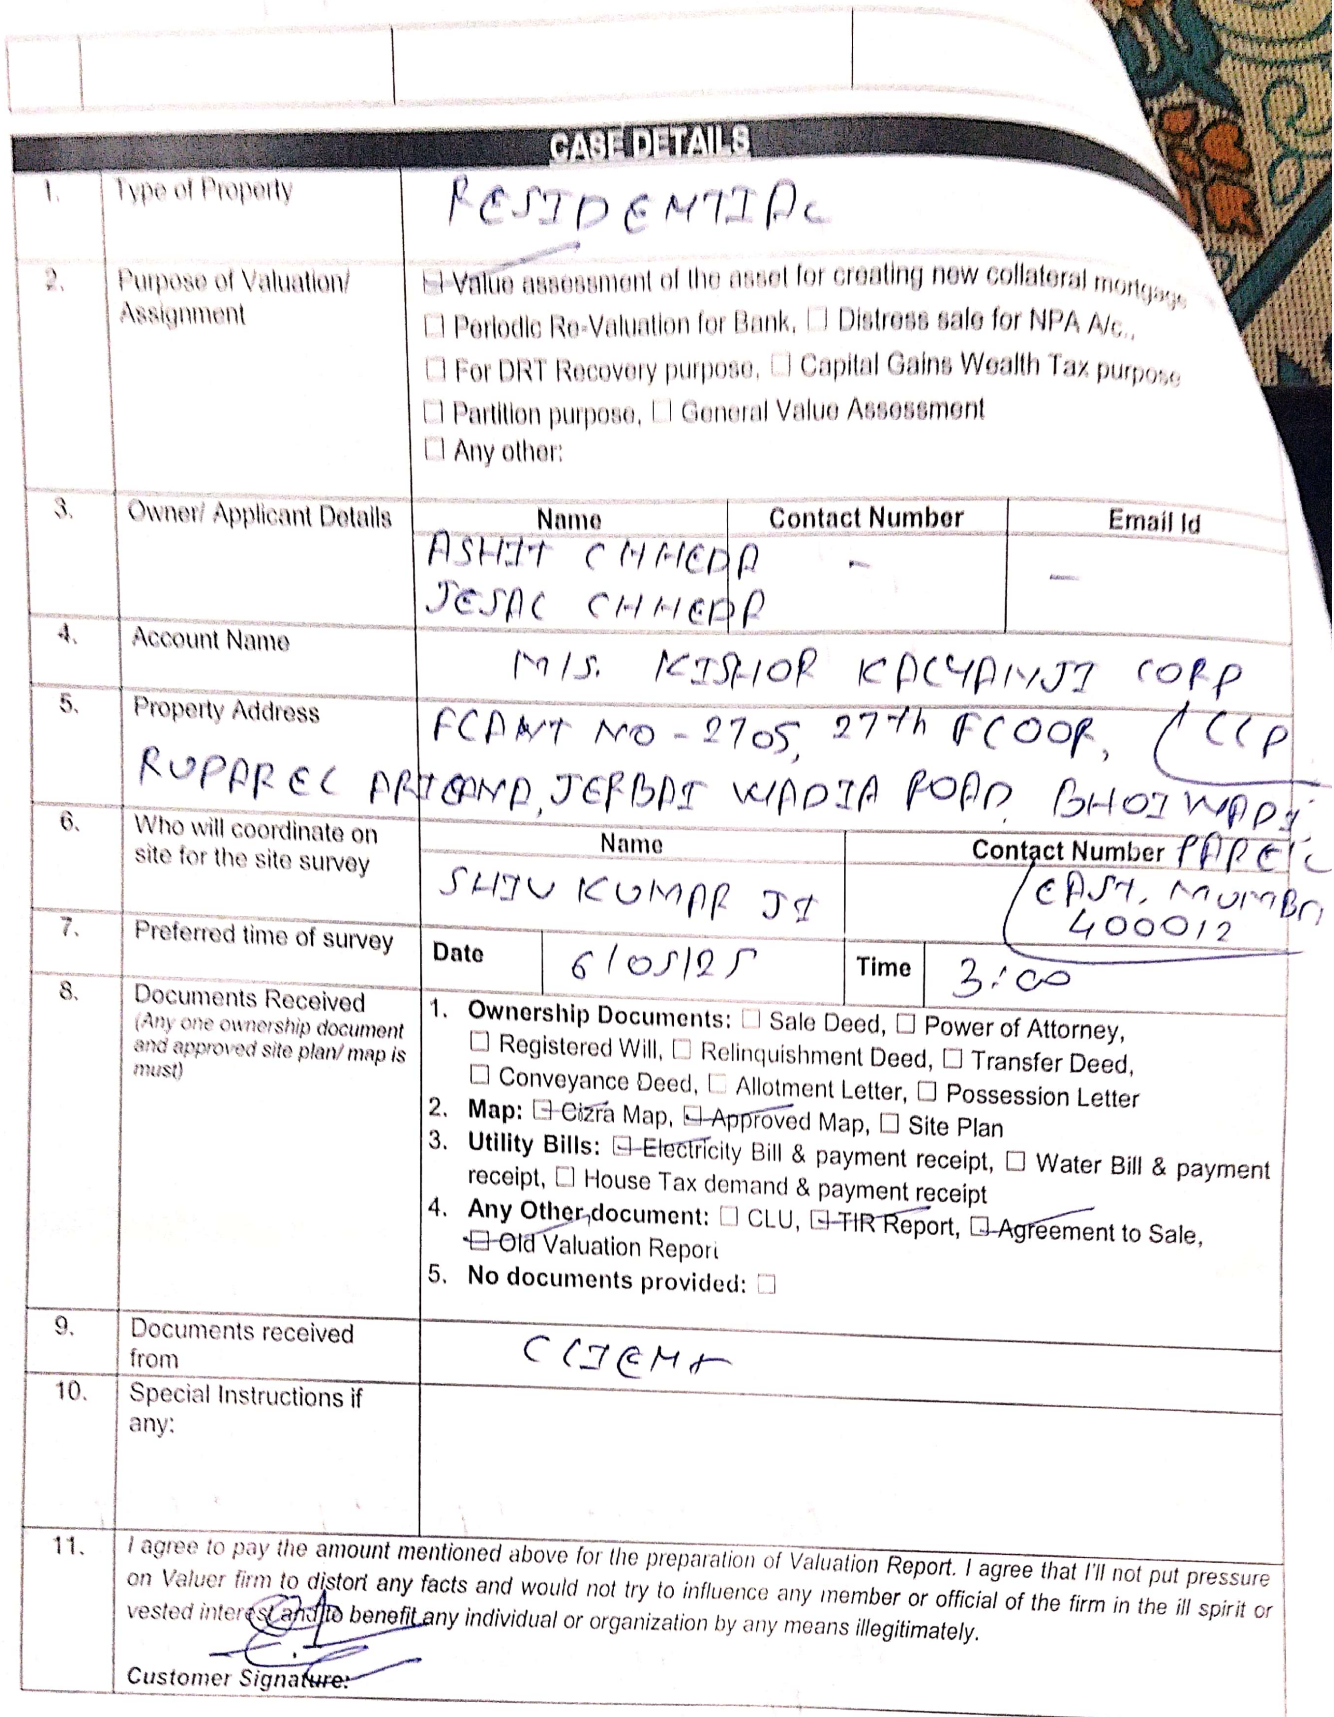 CASE DETAILS
1. Type of Property RESIDENTIAL
2. Purpose of Valuation/ Assignment
☑ Value assessment of the asset for creating new collateral mortgage
☐ Periodic Re-Valuation for Bank, ☐ Distress sale for NPA A/c.,
☐ For DRT Recovery purpose, ☐ Capital Gains Wealth Tax purpose
☐ Partition purpose, ☐ General Value Assessment
☐ Any other:
3. Owner/ Applicant Details
Name Contact Number Email Id
ASHIT CHHEDA - -
JESAL CHHEDA
4. Account Name M/S. KISHOR KALYANJI CORP
LLP
5. Property Address FLAT NO - 2705, 27th FLOOR,
RUPAREL ARIANA, JERBAI WADIA ROAD, BHOIWADA,
PAREL
EAST, MUMBAI
400012
6. Who will coordinate on
site for the site survey
Name Contact Number
SHIV KUMAR JI
7. Preferred time of survey Date 6/05/25 Time 3:00
8. Documents Received
(Any one ownership document
and approved site plan/ map is
must)
1. Ownership Documents: ☐ Sale Deed, ☐ Power of Attorney,
☐ Registered Will, ☐ Relinquishment Deed, ☐ Transfer Deed,
☐ Conveyance Deed, ☐ Allotment Letter, ☐ Possession Letter
2. Map: ☑ Cizra Map, ☑ Approved Map, ☐ Site Plan
3. Utility Bills: ☑ Electricity Bill & payment receipt, ☐ Water Bill & payment
receipt, ☐ House Tax demand & payment receipt
4. Any Other document: ☐ CLU, ☑ TIR Report, ☑ Agreement to Sale,
☑ Old Valuation Report
5. No documents provided: ☐
9. Documents received
from
CLIENT
10. Special Instructions if
any:
11. I agree to pay the amount mentioned above for the preparation of Valuation Report. I agree that I'll not put pressure
on Valuer firm to distort any facts and would not try to influence any member or official of the firm in the ill spirit or
vested interest and to benefit any individual or organization by any means illegitimately.
Customer Signature: